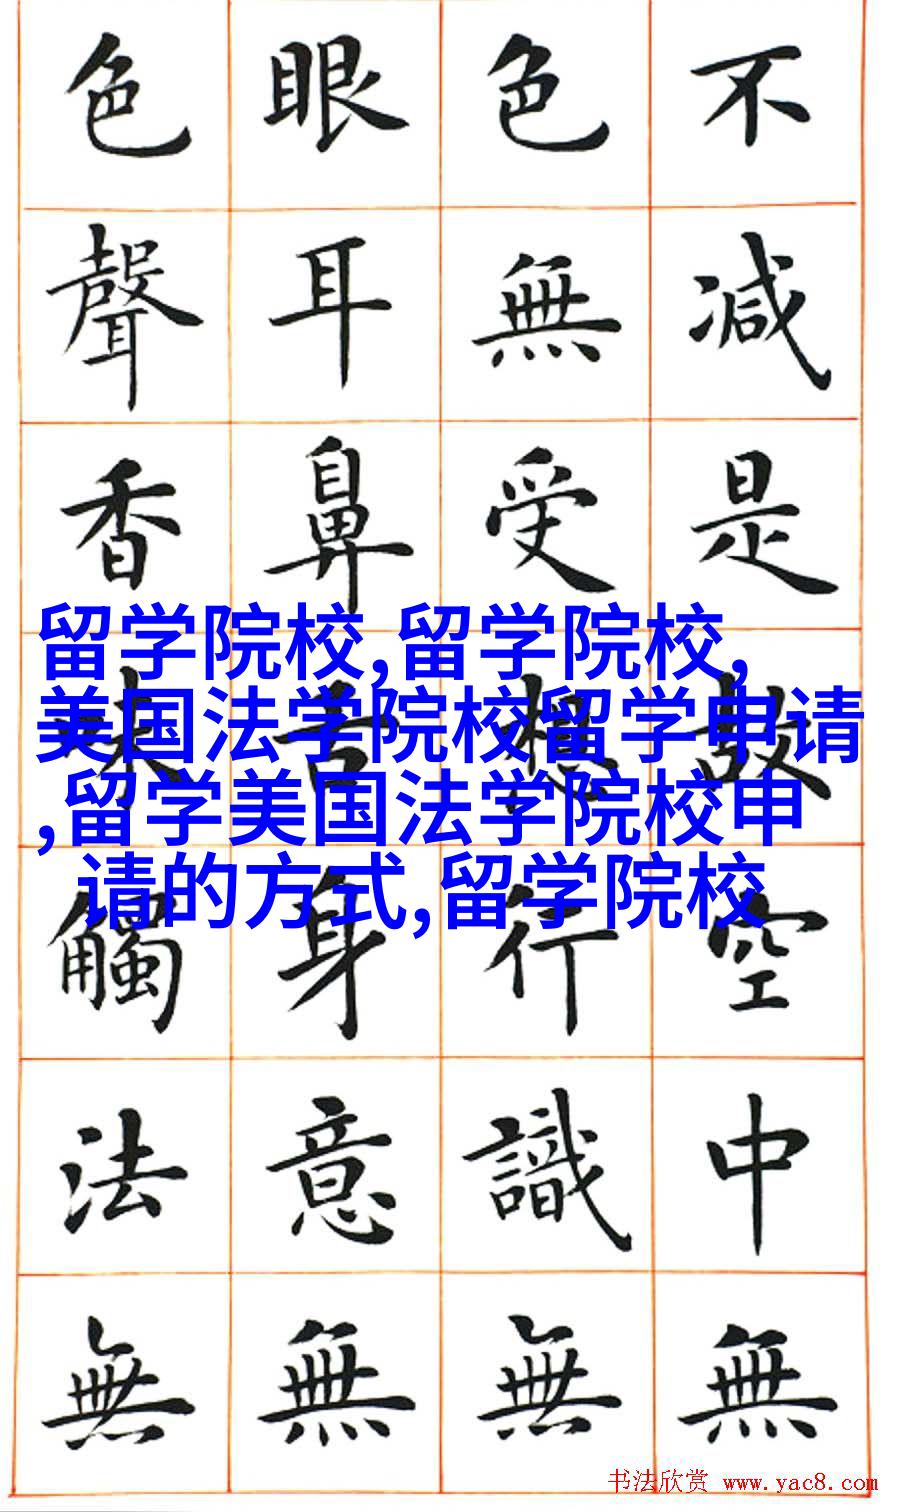 不减是故空中無
色無受想行識無
眼耳鼻舌身意無
色聲香味觸法無
留学院校,留学院校,
美国法学院校留学申请
,留学美国法学院校申
请的方式,留学院校
书法欣赏 www.yac8.com